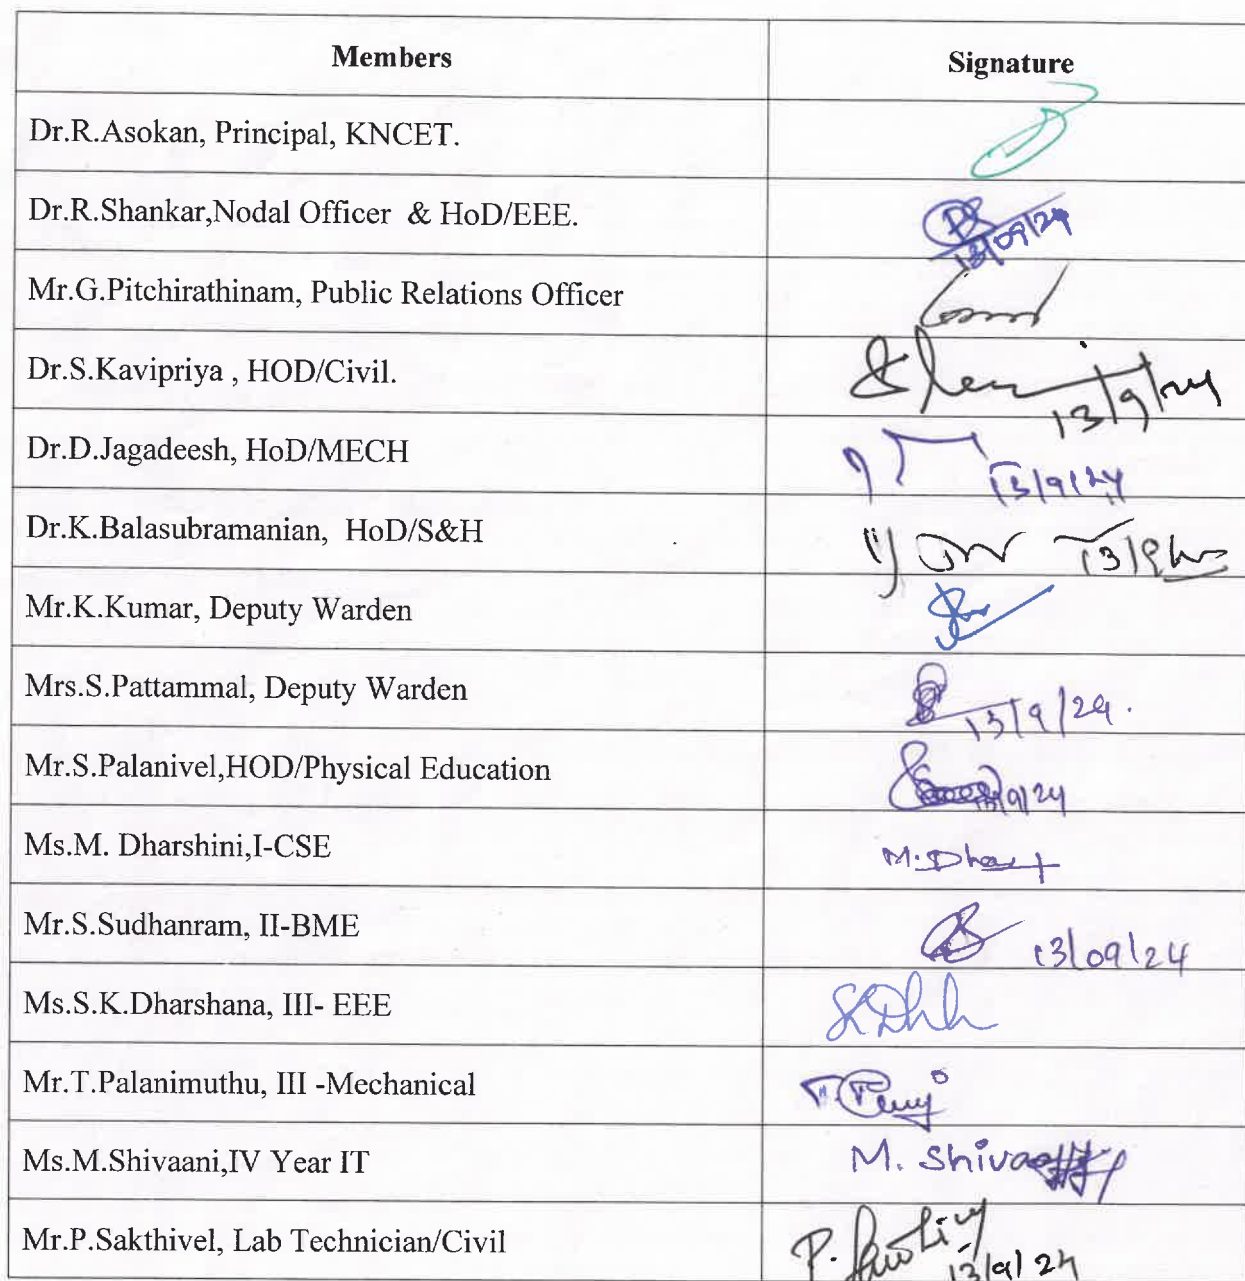 Members Signature
Dr.R.Asokan, Principal, KNCET.
Dr.R.Shankar,Nodal Officer & HoD/EEE. 13/09/24
Mr.G.Pitchirathinam, Public Relations Officer
Dr.S.Kavipriya , HOD/Civil. 13/9/24
Dr.D.Jagadeesh, HoD/MECH 13/9/24
Dr.K.Balasubramanian, HoD/S&H
Mr.K.Kumar, Deputy Warden
Mrs.S.Pattammal, Deputy Warden 13/9/24.
Mr.S.Palanivel,HOD/Physical Education
Ms.M. Dharshini,I-CSE
Mr.S.Sudhanram, II-BME 13/09/24
Ms.S.K.Dharshana, III- EEE
Mr.T.Palanimuthu, III -Mechanical
Ms.M.Shivaani,IV Year IT
Mr.P.Sakthivel, Lab Technician/Civil 13/9/24